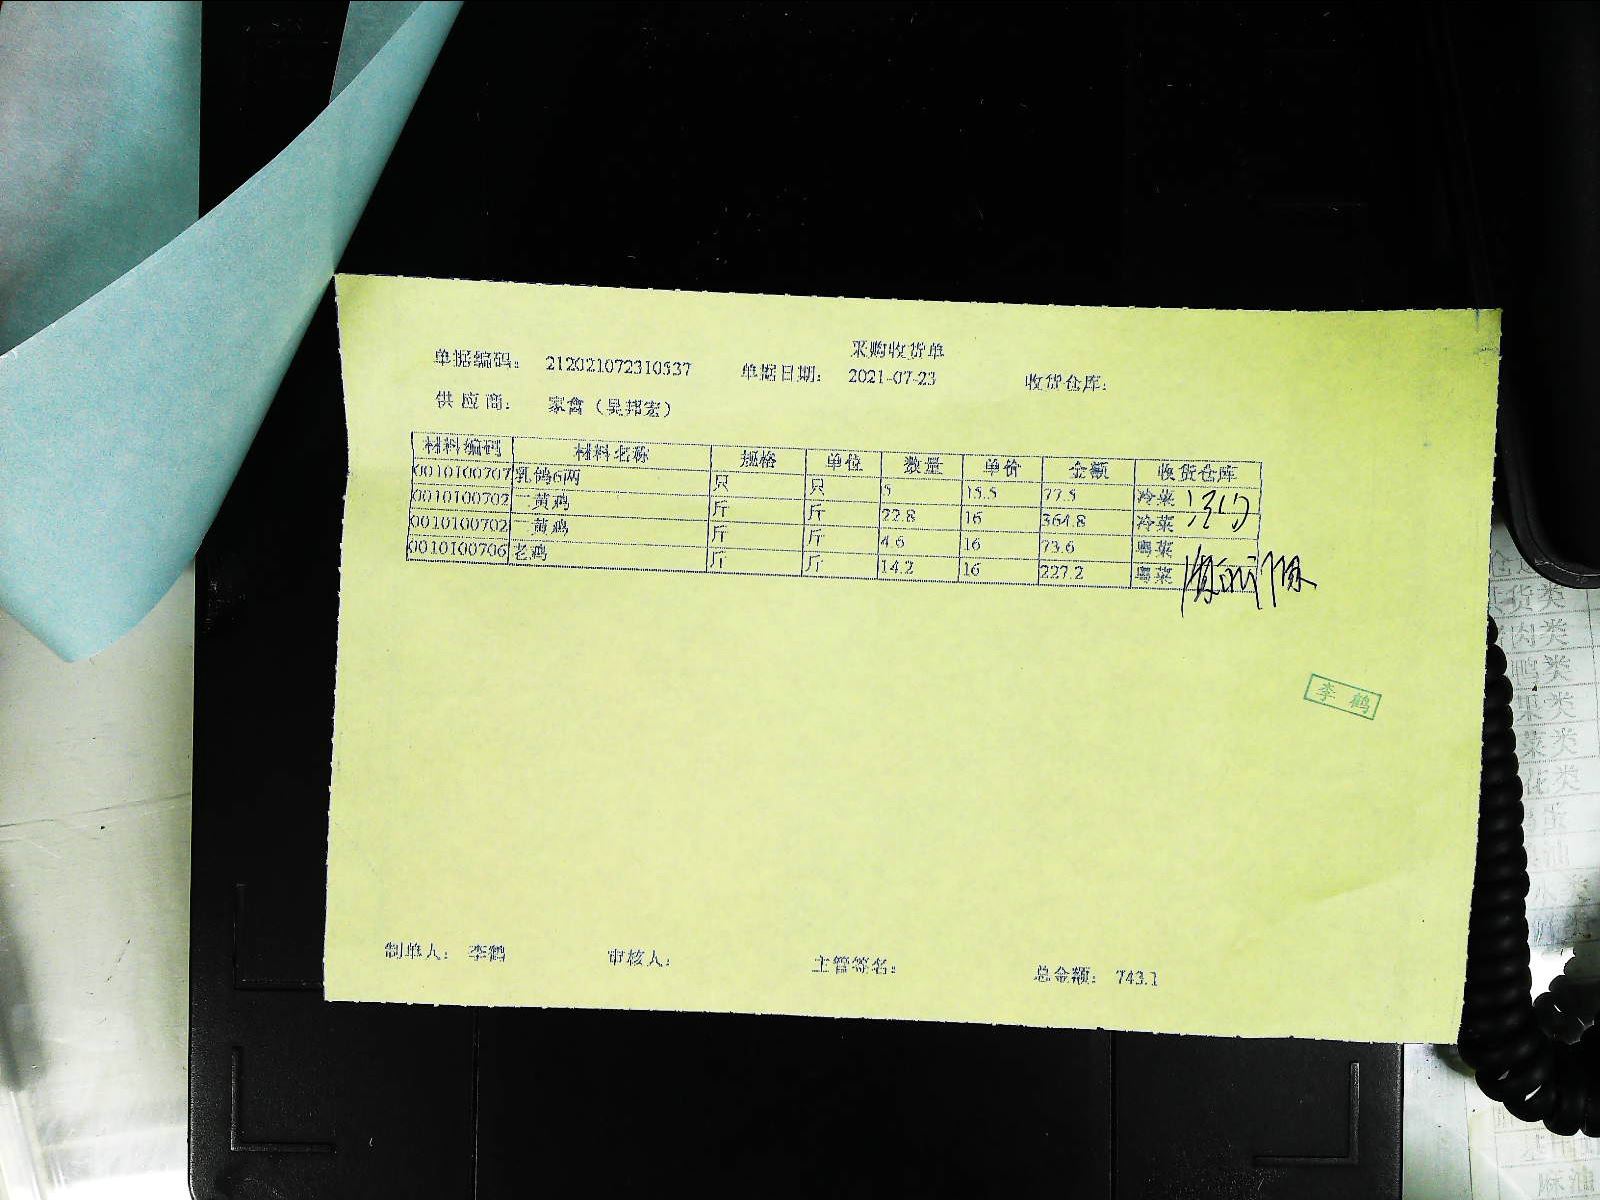 采购收货单
单据编码： 212021072310537 单据日期： 2021-07-23 收货仓库：
供应商： 家禽（吴邦宏）
材料编码 材料名称 规格 单位 数量 单价 金额 收货仓库
0010100707 乳鸽6两 只 只 5 15.5 77.5 冷菜
0010100702 二黄鸡 斤 斤 22.8 16 364.8 冷菜
0010100702 二黄鸡 斤 斤 4.6 16 73.6 粤菜
0010100706 老鸡 斤 斤 14.2 16 227.2 粤菜
李鹤
制单人： 李鹤 审核人： 主管签名： 总金额： 743.1
货类
肉类
鸭类
果类
菜类
类
油
麻油